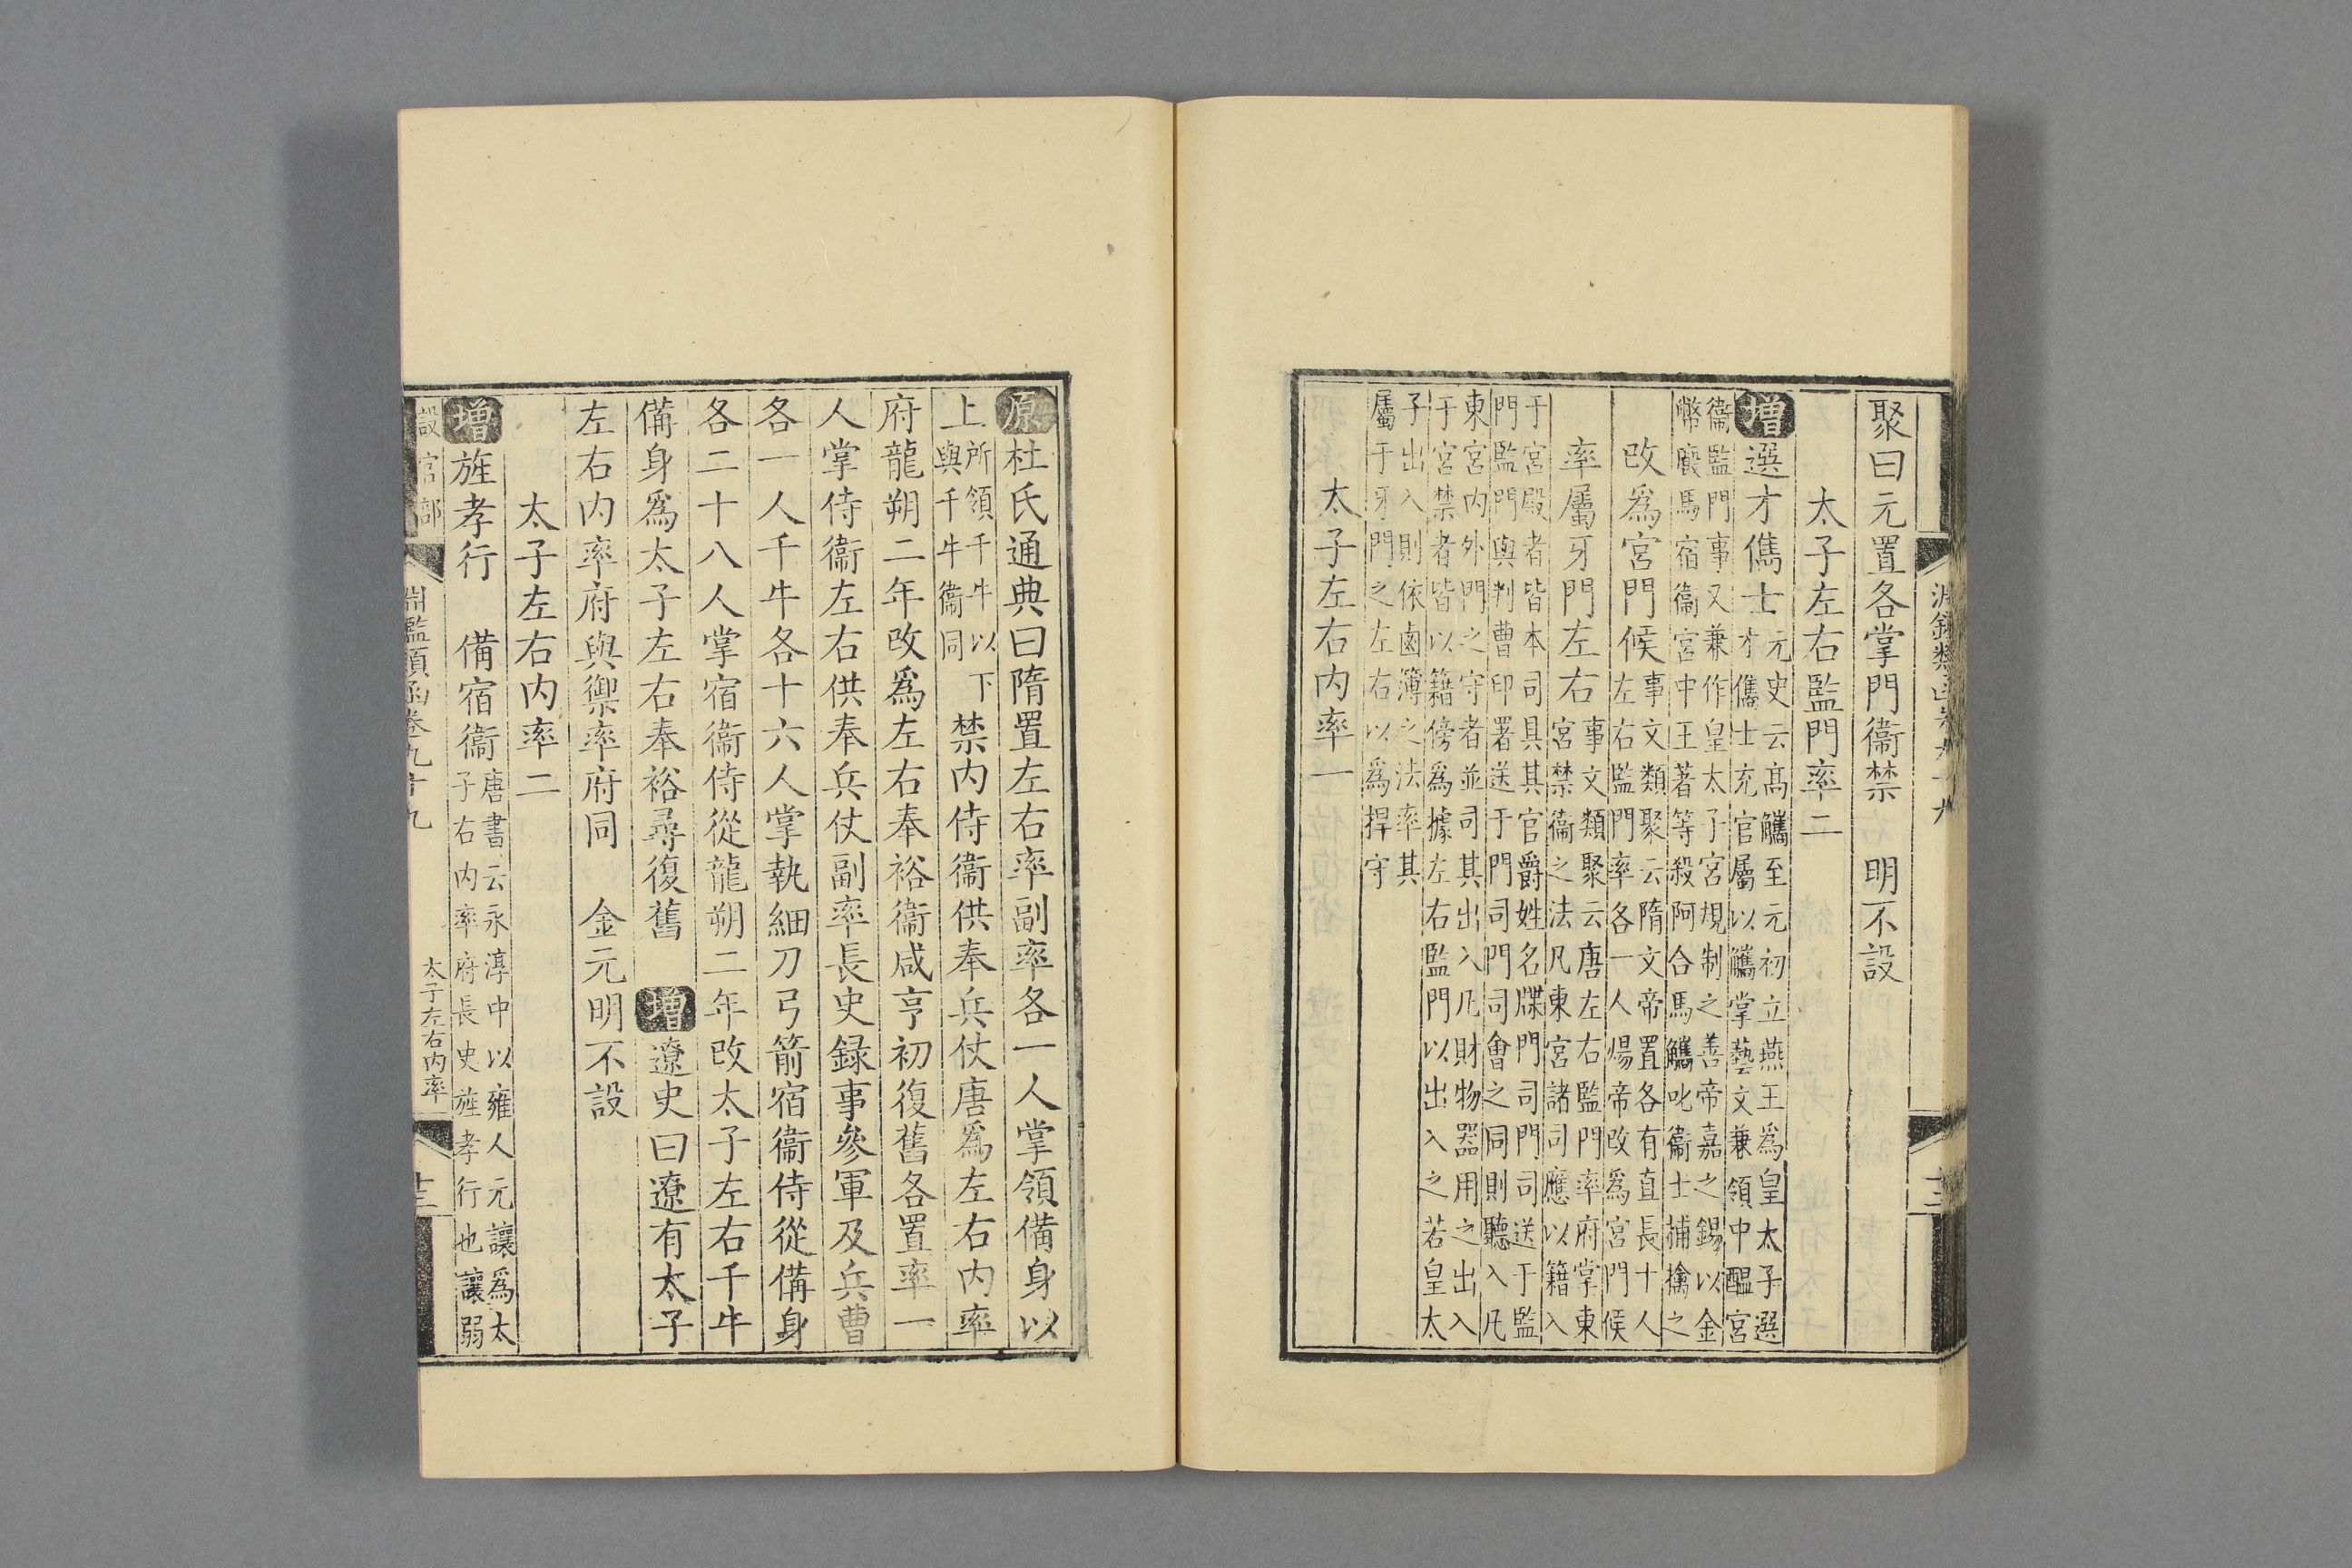 聚曰元置各掌門衞禁　明不設
太子左右監門率二
增選才儁士元史云髙觿至元初立燕王爲皇太子選
才儁士充官屬以觿掌藝文兼領中醖宮
衞監門事又兼作皇太子宮規制之善帝嘉之錫以金
幣廐馬宿衞宮中王著等殺阿合馬觿叱衞士捕擒之
改爲宮門候事文類聚云隋文帝置各有直長十人
左右監門率各一人煬帝改爲宮門候
率屬牙門左右事文類聚云唐左右監門率府掌東
宮禁衞之法凡東宮諸司應以籍入
于宮殿者皆本司具其官爵姓名牒門司門司送于監
門監門與判曹印署送于門司門司會之同則聽入凡
東宮内外門之守者並司其出入凡財物器用之出入
于宮禁者皆以籍傍爲據左右監門以出入之若皇太
子出入則依鹵簿之法率其
屬于牙門之左右以爲捍守
太子左右内率一
原杜氏通典曰隋置左右率副率各一人掌領備身以
上所領千牛以下
與千牛衞同
禁内侍衞供奉兵仗唐爲左右内率
府龍朔二年改爲左右奉裕衞咸亨初復舊各置率一
人掌侍衞左右供奉兵仗副率長史録事參軍及兵曹
各一人千牛各十六人掌執細刀弓箭宿衞侍從備身
各二十八人掌宿衞侍從龍朔二年改太子左右千牛
備身爲太子左右奉裕尋復舊　增遼史曰遼有太子
左右内率府與禦率府同　金元明不設
太子左右内率二
增旌孝行　備宿衞唐書云永淳中以雍人元讓爲太
子右内率府長史旌孝行也讓弱
設官部
淵鑑類函卷九十九
太子左右内率
十三